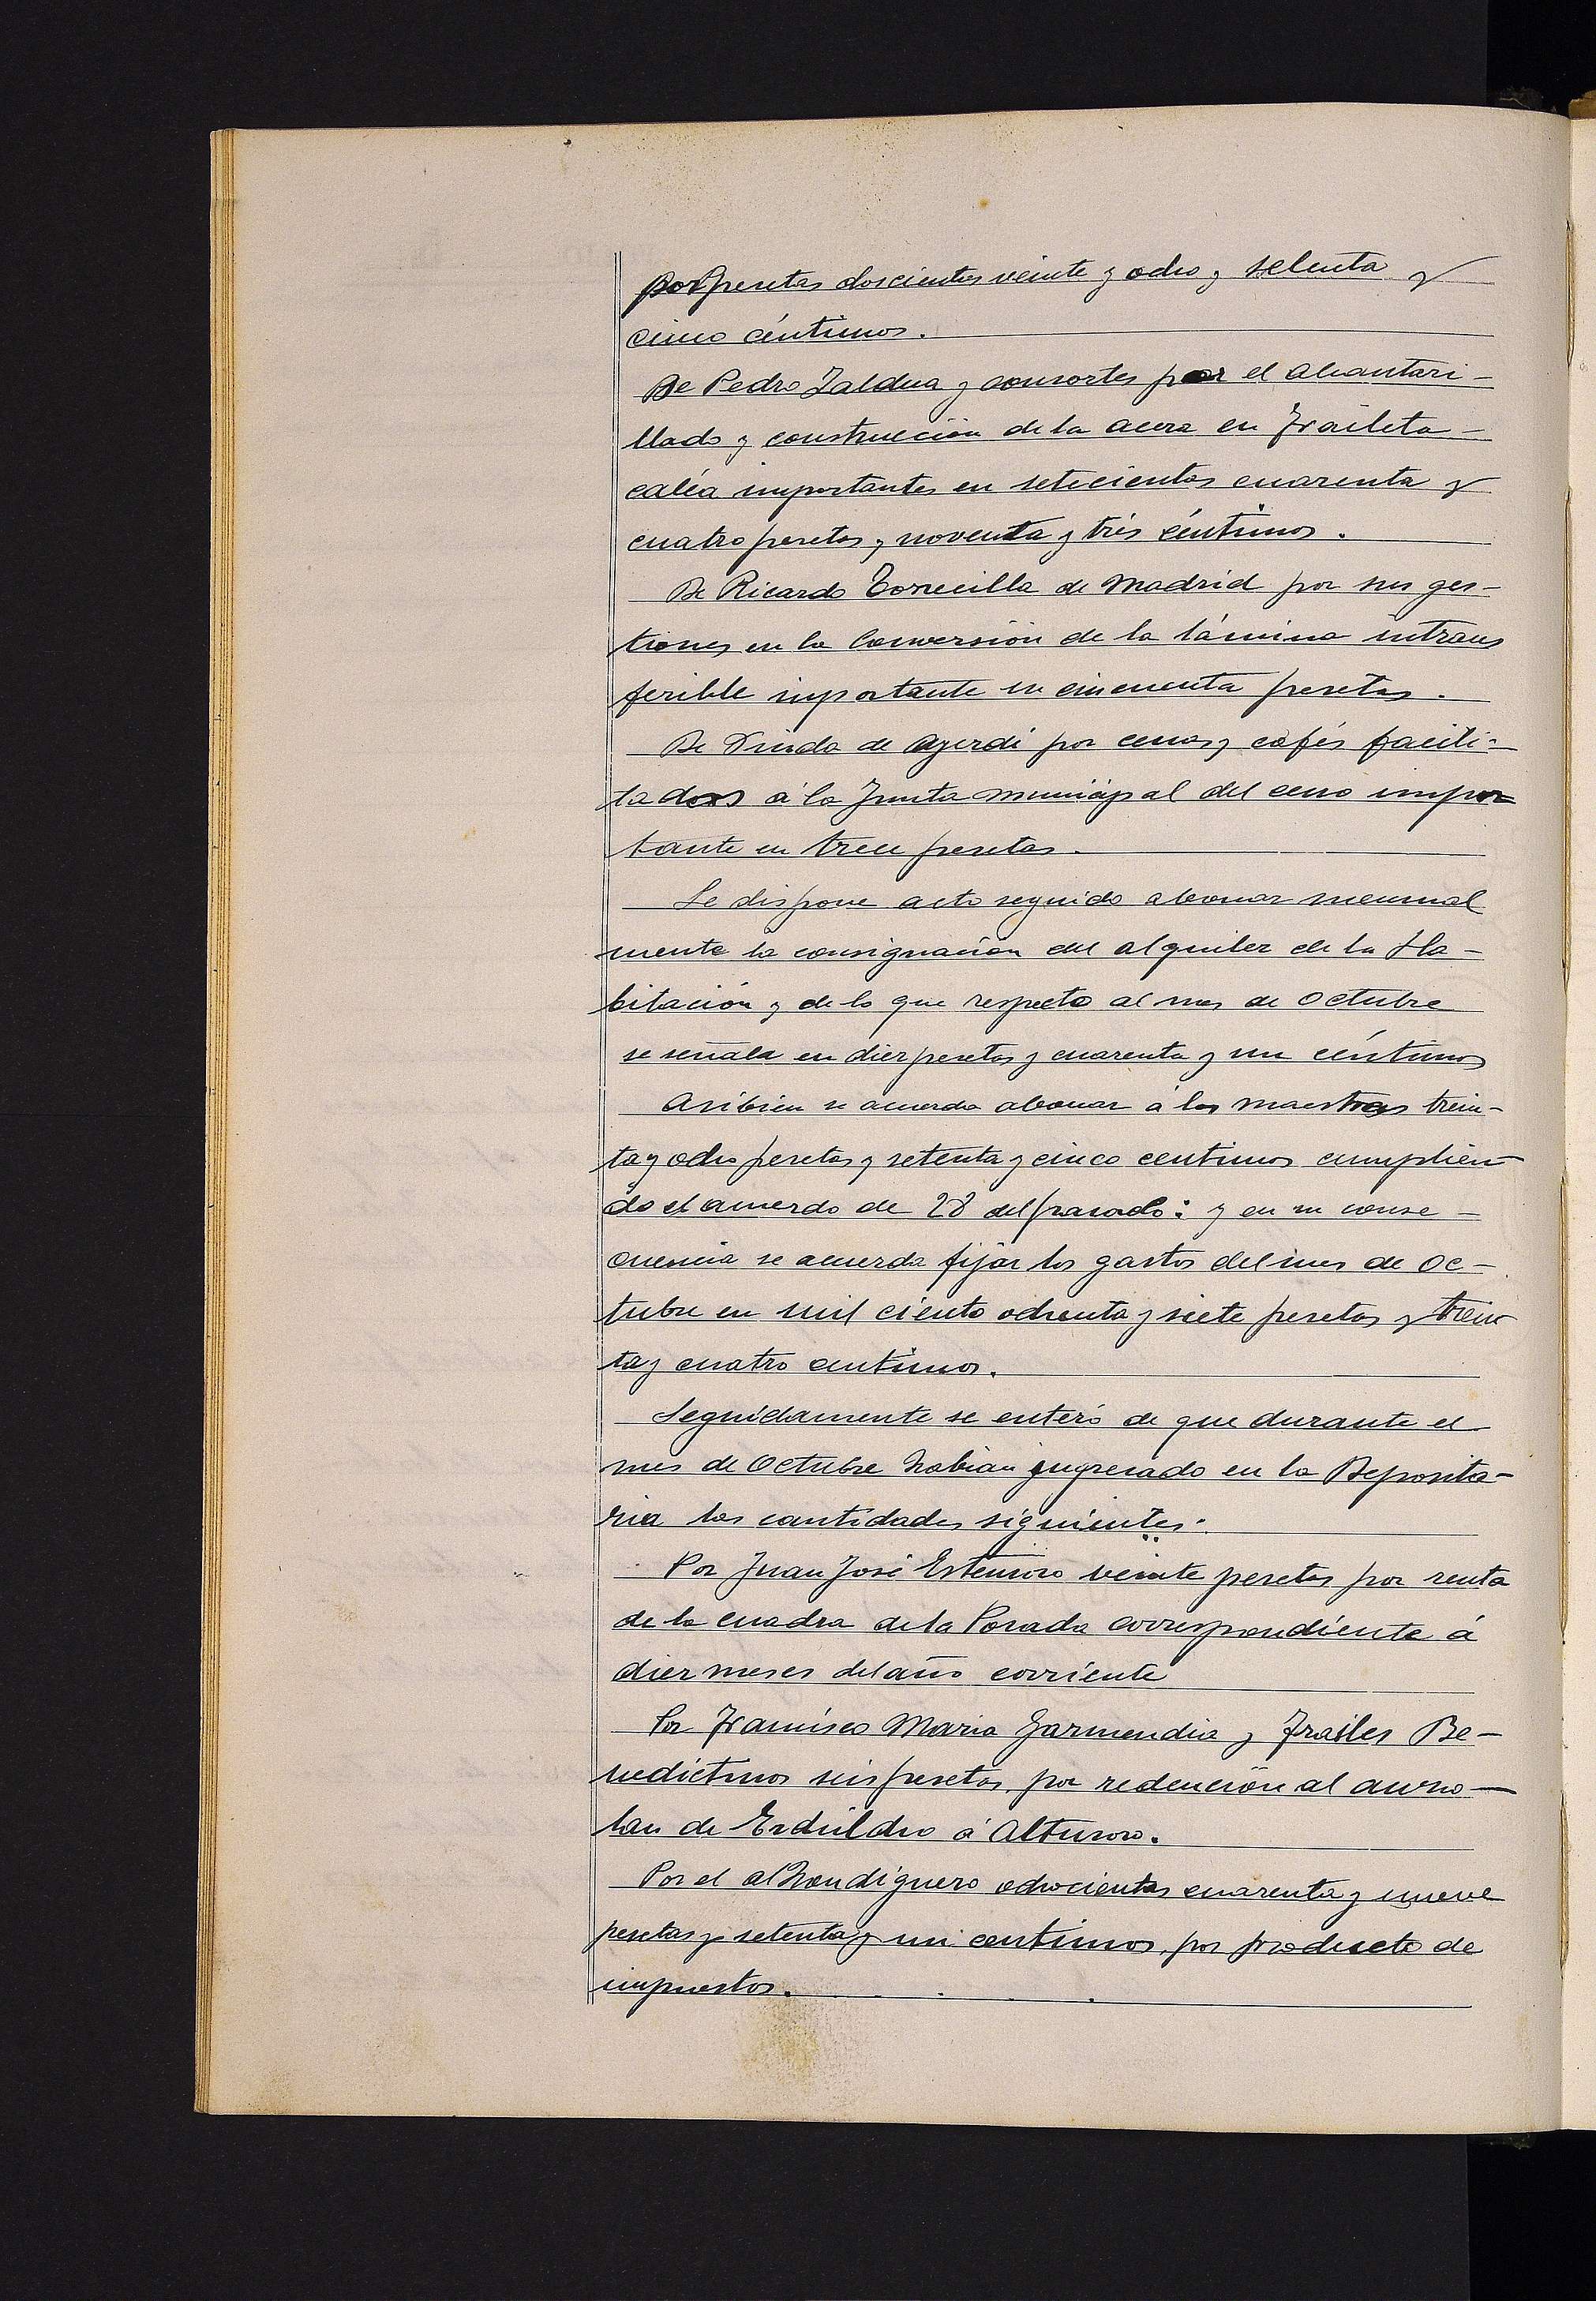 por pesetas doscientas veinte y ocho y setenta y
cinco céntimos.
De Pedro Zaldua y consortes por el alcantari-
llado y construcción de la acera en Fraileta-
caléa importantes en setecientas cuarenta y
cuatro pesetas y noventa y trés céntimos.
De Ricardo Torrecilla de Madrid por sus ges-
tiones en la Conversión de la lámina intrans
ferible importante en cincuenta pesetas.
De Viuda de Ayerdi por cenas y cafés facili-
tados á la Junta municipal del censo impor-
tante en trece pesetas.
Se dispone acto seguido abonar mensual
mente la consignación del alquiler de la Ha-
bitación y de lo que respecto al mes de Octubre
se señala en diez pesetas y cuarenta y un céntimos
Asibien se acuerda abonar á las maestras trein-
ta y ocho pesetas y setenta y cinco centimos cumplien-
do el acuerdo de 28 del pasado: y en su conse-
cuencia se acuerda fijar los gastos del mes de Oc-
tubre en mil ciento ochenta y siete pesetas y trein
ta y cuatro centimos.
Seguidamente se enteró de que durante el
mes de Octubre habian ingresado en la Deposita-
ria las cantidades siguientes.
Por Juan José Estensoro veinte pesetas por renta
de la cuadra de la Posada correspondiente á
diez meses del año corriente
Por Francisco Maria Garmendia y Frailes Be-
nedictinos seis pesetas por redención al auzo-
lan de á
Por el alhondiguero ochocientas cuarenta y nueve
pesetas y setenta y un centimos, por producto de
impuestos.